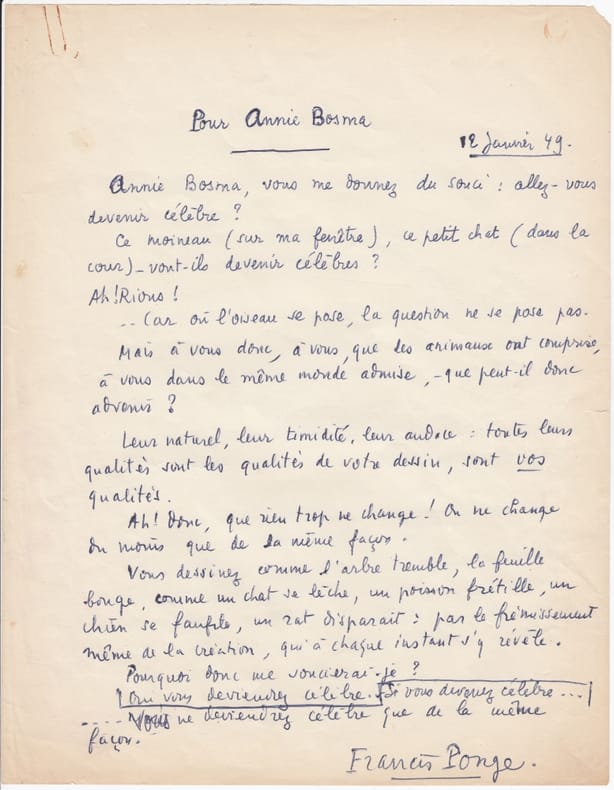 Pour Annie Bosma
12 Janvier 49.
Annie Bosma, vous me donnez du souci : allez-vous
devenir célèbre ?
Ce moineau (sur ma fenêtre), ce petit chat (dans la
cour) – vont-ils devenir célèbres ?
Ah! Rions !
... Car où l'oiseau se pose, la question ne se pose pas.
Mais à vous donc, à vous, que les animaux ont comprise,
à vous dans le même monde admise, – que peut-il donc
advenir ?
Leur naturel, leur timidité, leur audace : toutes leurs
qualités sont les qualités de votre dessin, sont vos
qualités.
Ah! donc, que rien trop ne change ! On ne change
du moins que de la même façon.
Vous dessinez comme l'arbre tremble, la feuille
bouge, comme un chat se lèche, un poisson frétille, un
chien se faufile, un rat disparait : par le frémissement
même de la création, qui à chaque instant s'y révèle.
Pourquoi donc me soucierai-je ?
Oui vous deviendrez célèbre. Si vous devenez célèbre ...
.... Vous ne deviendrez célèbre que de la même
façon.
Francis Ponge.